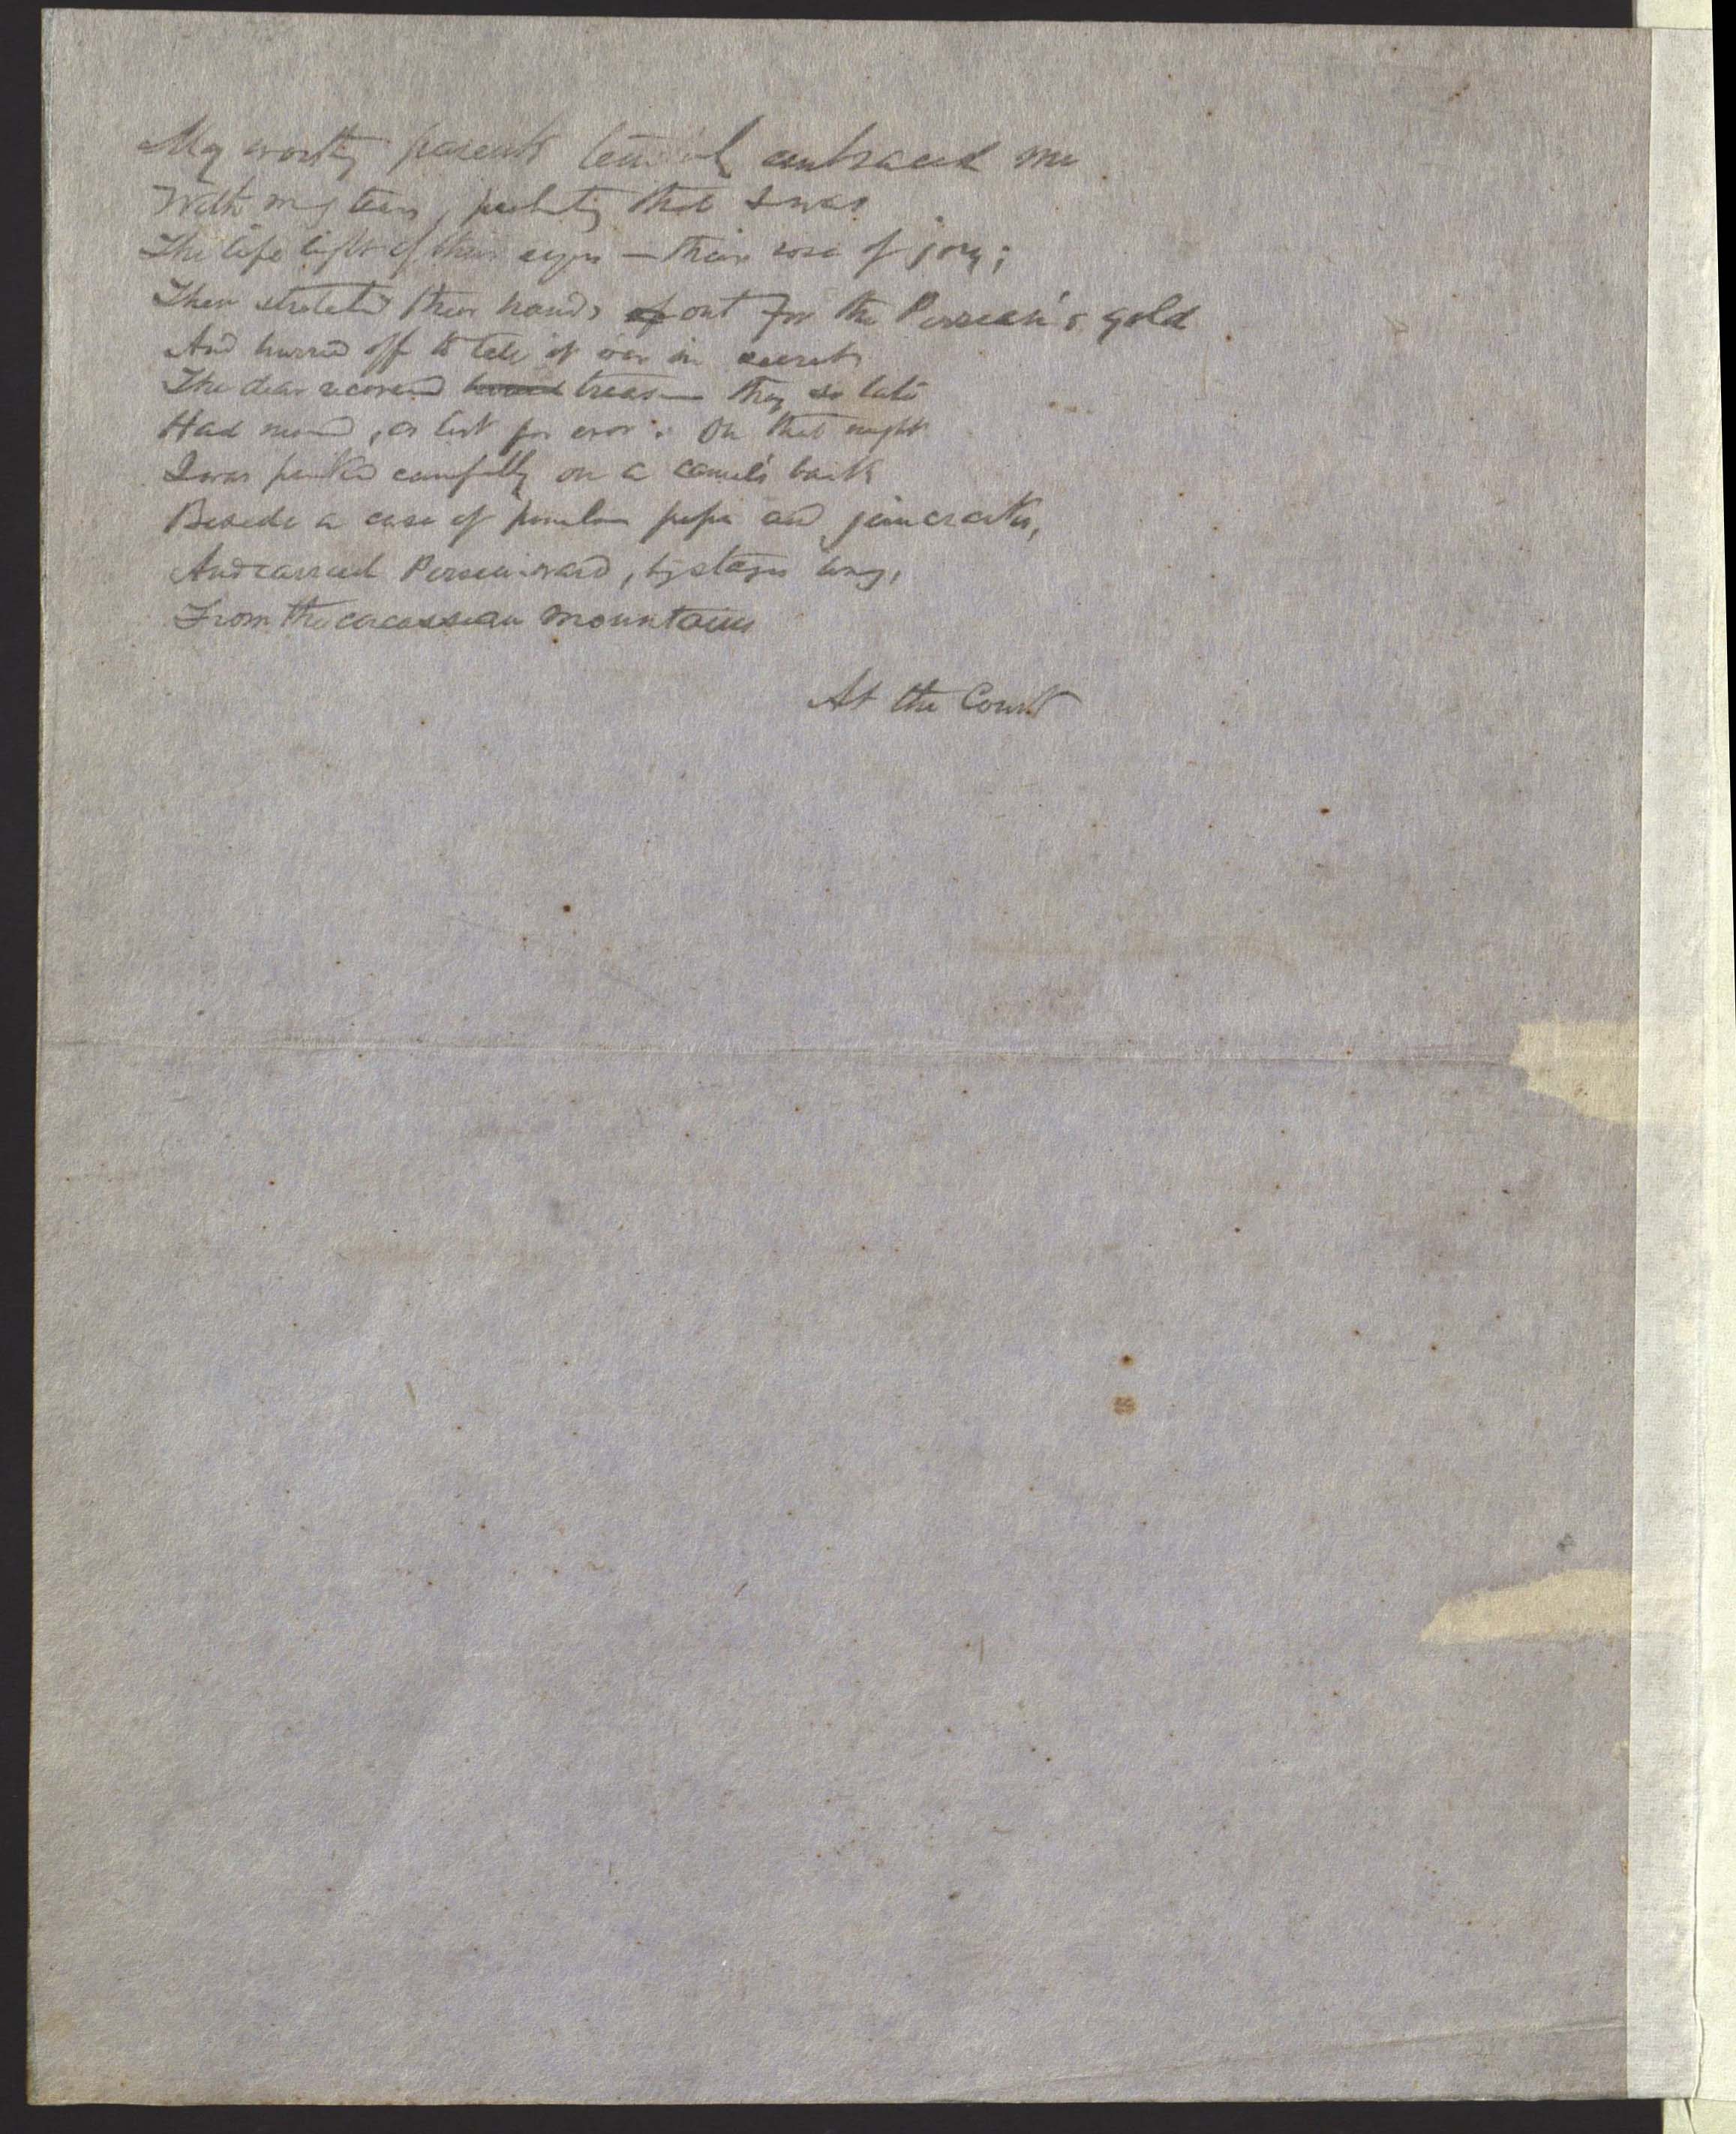 My worthy parents embraced me
With many tears, protesting that I was
The life light of their eyes — their rose of joy;
Then stretched their hands out for the Persian's gold
And hurried off to tell it over in secret
The dear recovered treasure they so late
Had mourned, as lost for ever. On that night
I was packed carefully on a camel's back
Beside a case of pipes and jimcracks,
And carried Persiaward, by stages long,
From the cacassian mountains
At the Court